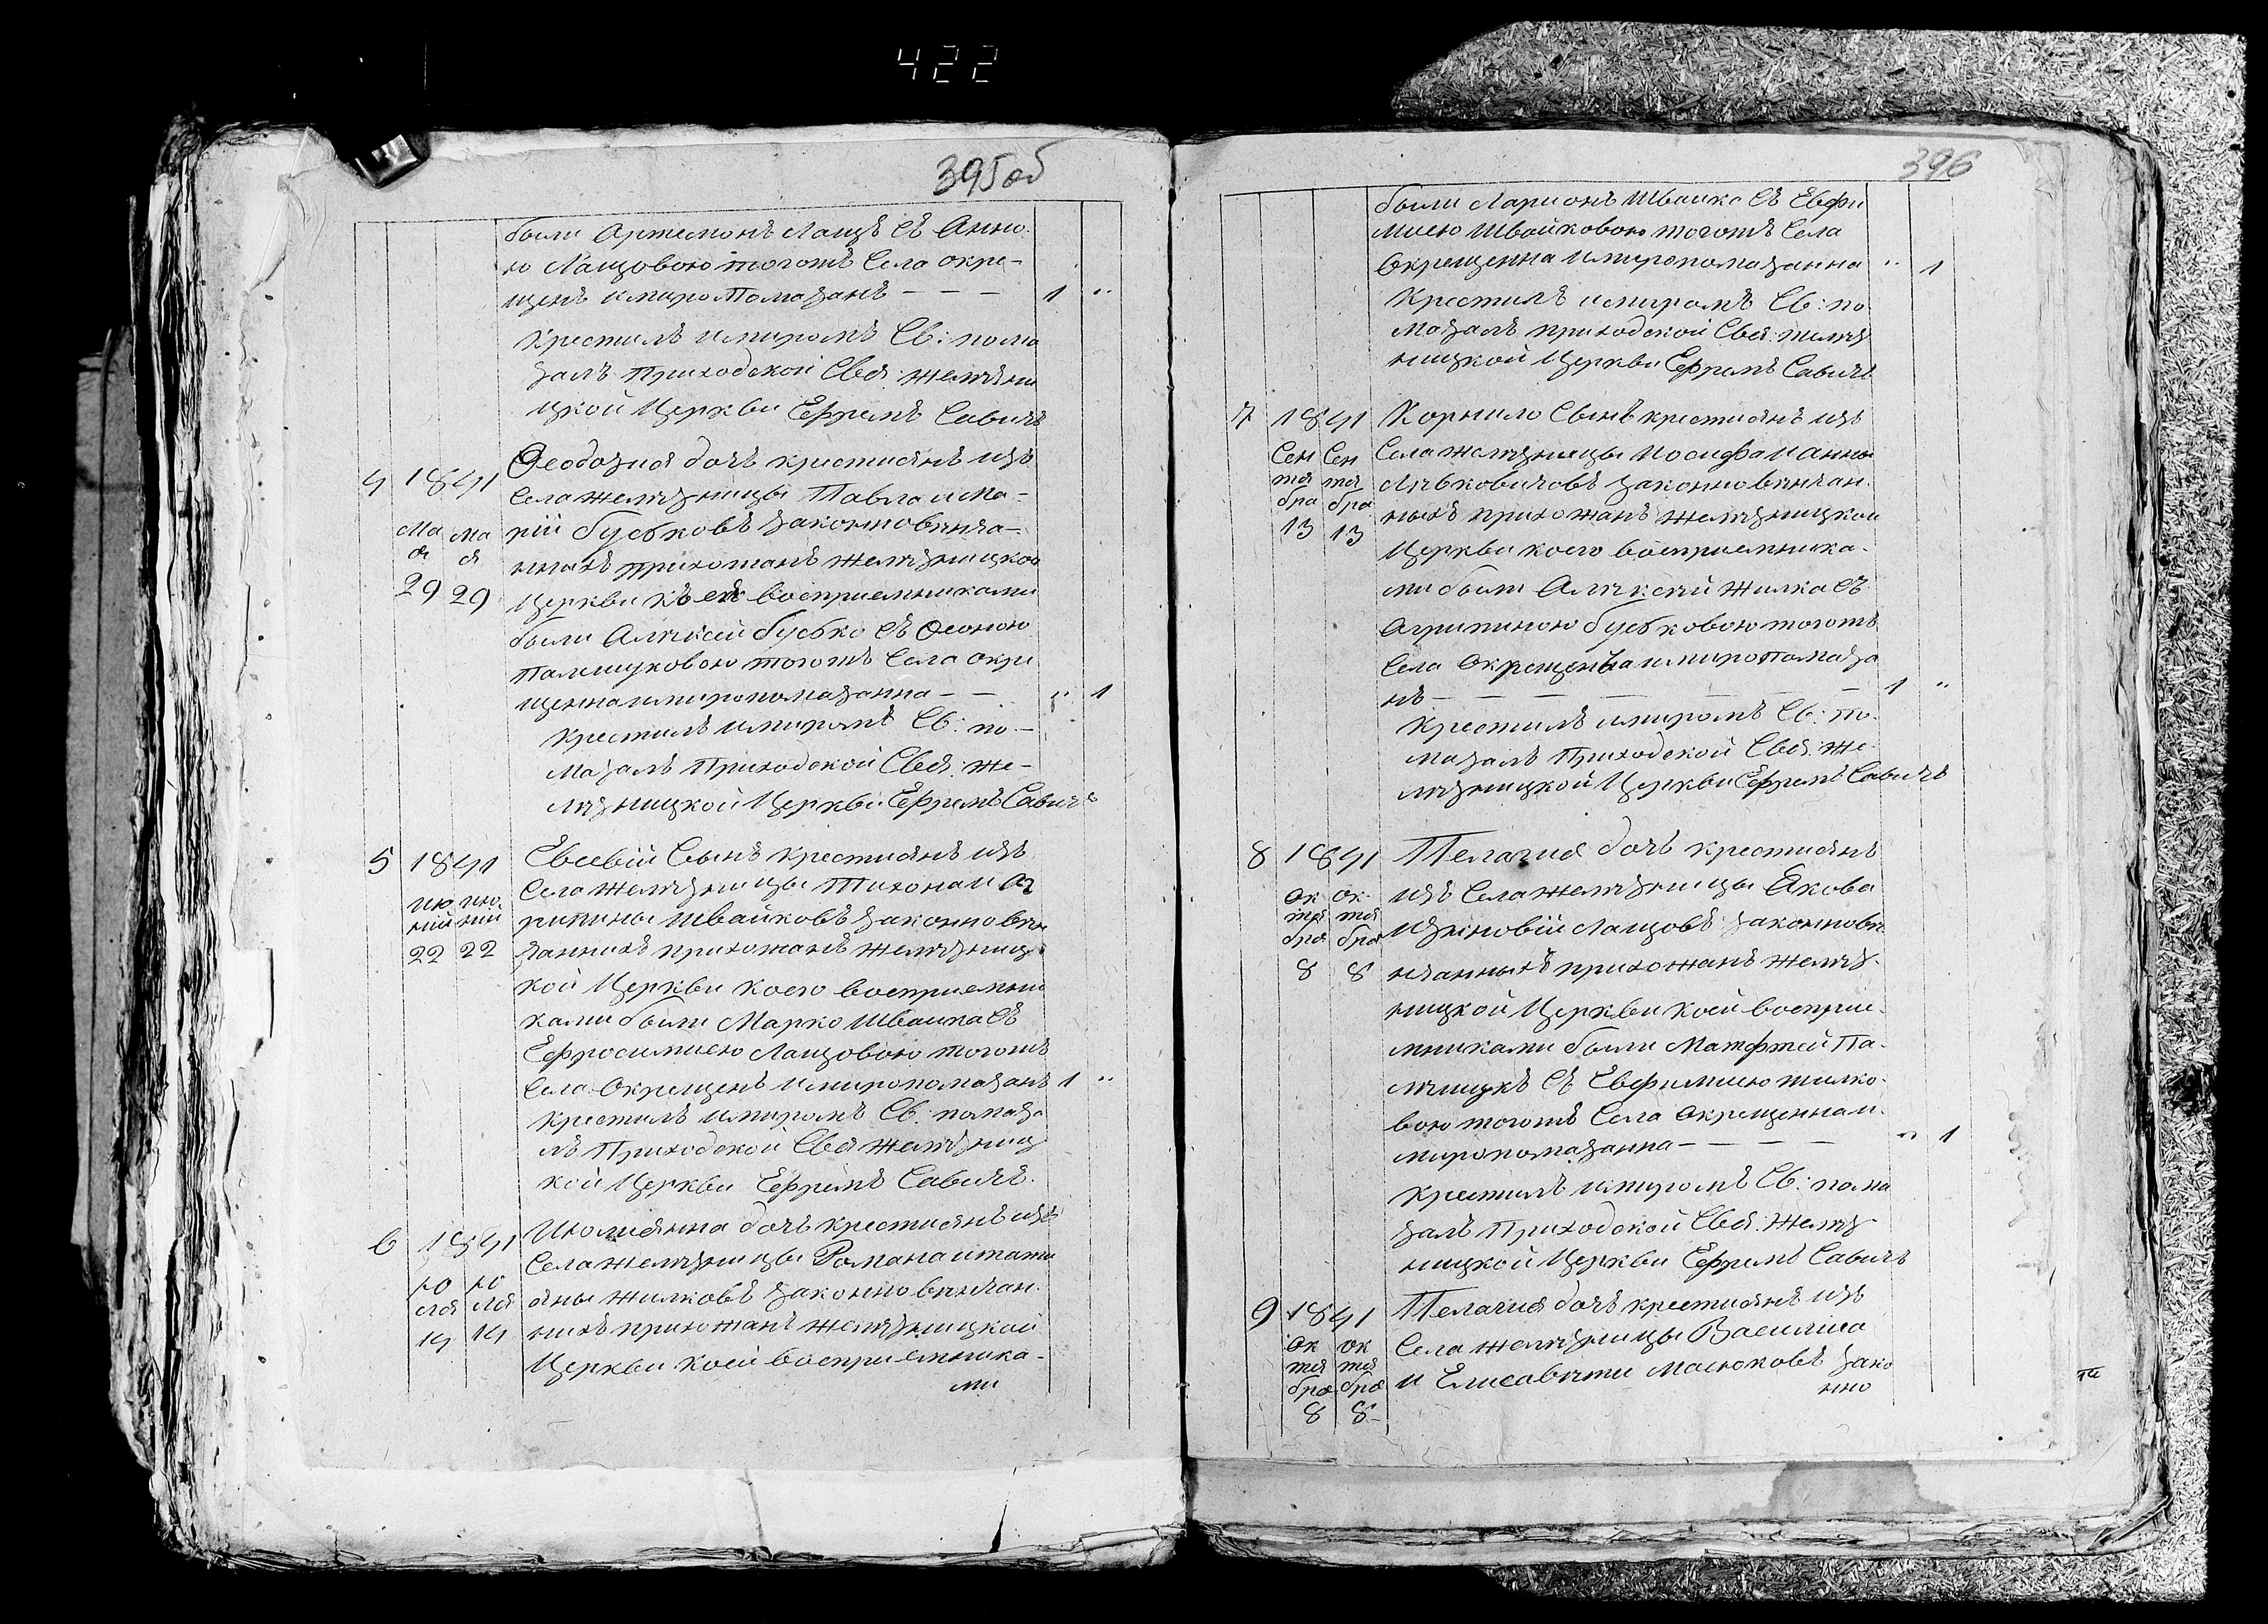 422
395 об
были Артемонъ Лащъ съ Анно
ю Лащовою тогожъ Села окре-
щенъ имиропомазанъ - - - 1 "
Крестилъ имиромъ Св: пома
залъ Приходской Свя: желѣзни
цкой Церкви Ефремъ Савичъ
4 1841 Ѳеодозия дочь крестиянъ изъ
Села желѣзницы Павла и Ма-
Ма Ма рій бубковъ законновѣнча-
я я нныхъ прихожанъ желѣзницкой
29 29 Церкви восприемниками
были Алѣксѣй бубко съ Ѳеоною
Палищуковою тогожъ Села окре
щеннаимиропомазанна - - " 1
Крестилъ имиромъ Св: по-
мазалъ Приходской Свя: же-
лѣзницкой Церкви Ефремъ Савичъ
5 1841 Евсевій Сынъ крестиянъ изъ
Села желѣзницы Тихона и Аг
ию ию рипины швайковъ законновѣн
ний ний чанныхъ прихожанъ желѣзниц
22 22
кой Церкви коего восприемни
ками были Марко Швайка съ
Ефросимиею Лащовою тогожъ
Села Окрещенъ имиропомазанъ 1 "
Крестилъ имиромъ Св: помаза
лъ Приходской Свя желѣзниц
кой Церкви Ефремъ Савичъ.
6 1841 Июлиянна дочь крестиянъ изъ
Села желѣзницы Романа итати
ю ю
ля ля яны жилковъ законновѣнчан.
14 14 ныхъ прихожанъ желѣзницкой
Церкви коей восприемника-
ми
396
были Ларионъ Швайко съ Евфи
миею Швайковою тогожъ Села
Окрещенна имиропомазанна " 1
Крестилъ имиромъ Св: по
мазалъ приходской Свя: желѣз
ницкой Церкви Ефремъ Савичъ
7 1841 Корнило Сынъ крестиянъ изъ
Сен Сен Села желѣзницы Иосифа и Анны
тя тя Лѣвковичовъ законновѣнчан.
бра бра ныхъ прихожанъ желѣзницкой
13 13
Церкви коего восприемника-
ми были Алѣксѣй жилка съ
Агрипиною бубковою тогожъ
Села Окрещенъ имиропомаза
нъ - - - - - - 1 "
Крестилъ имиромъ Св: по-
мазалъ Приходской Свя: же-
лѣзницкой Церкви Ефремъ Савичъ
8 1841 Пелагия дочь крестиянъ
Ок Ок изъ Села желѣзницы Якова
тя тя
бря бря изѣновій Лащовъ законновѣ
8 8 нчанныхъ прихожанъ желѣз-
ницкой Церкви коей восприе-
мниками были Матфтей Па-
лѣщукъ съ Евфимиею жилко-
вою тогожъ Села Окрещенна и.
миропомазанна - - - - " 1
Крестилъ имиромъ Св: пома
залъ Приходской Свя: желѣз-
ницкой Церкви Ефремъ Савичъ
9 1841 Пелагия дочь крестиянъ изъ
Ок Ок Села желѣзницы Василиа
тя тя
бря бря и Елисавѣти Масюковъ зако
нно
8 8